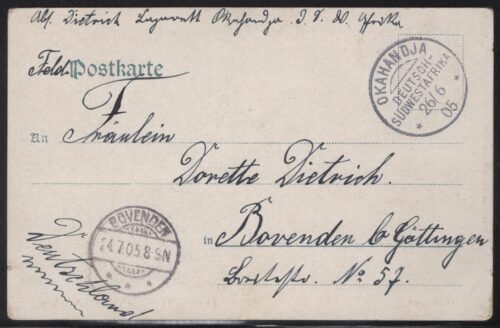 Abs. Dietrich Lazarett Okahandja D. S. W. Afrika
Feld Postkarte
OKAHANDJA
DEUTSCH-
SÜDWESTAFRIKA
26/6
05
An Fräulein
Dorette Dietrich.
in Bovenden b/Göttingen
No 57.
BOVENDEN
24.7.05 8-9N
Deutschland